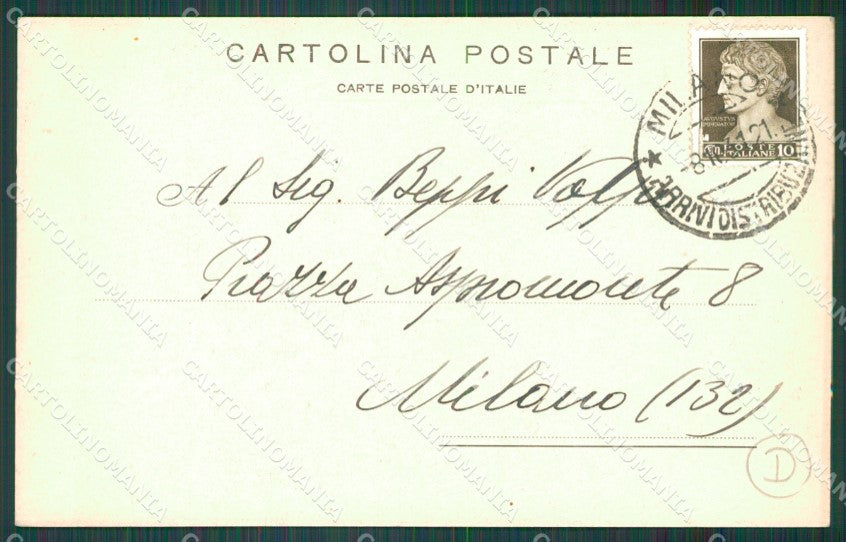 CARTOLINA POSTALE
CARTE POSTALE D'ITALIE
AUGUSTUS
POSTE
ITALIANE 10
MILANO
ARRIVI DISTRIBUZ
Al Sig. Beppi Volpi
Piazza Aspromonte 8
Milano (132)
D
CARTOLINOMANIA